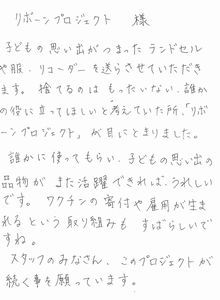 リボーンプロジェクト 様
子どもの思い出がつまったランドセル
や服、リコーダーを送らさせていただき
ます。捨てるのはもったいない、誰か
の役に立ってほしいと考えていた所、「リボ
ーンプロジェクト」が目にとまりました。
誰かに使ってもらい、子どもの思い出の
品物がまた活躍できれば、うれしい
です。ワクチンの寄付や雇用が生ま
れるという取り組みもすばらしいで
すね。
スタッフのみなさん、このプロジェクトが
続く事を願っています。